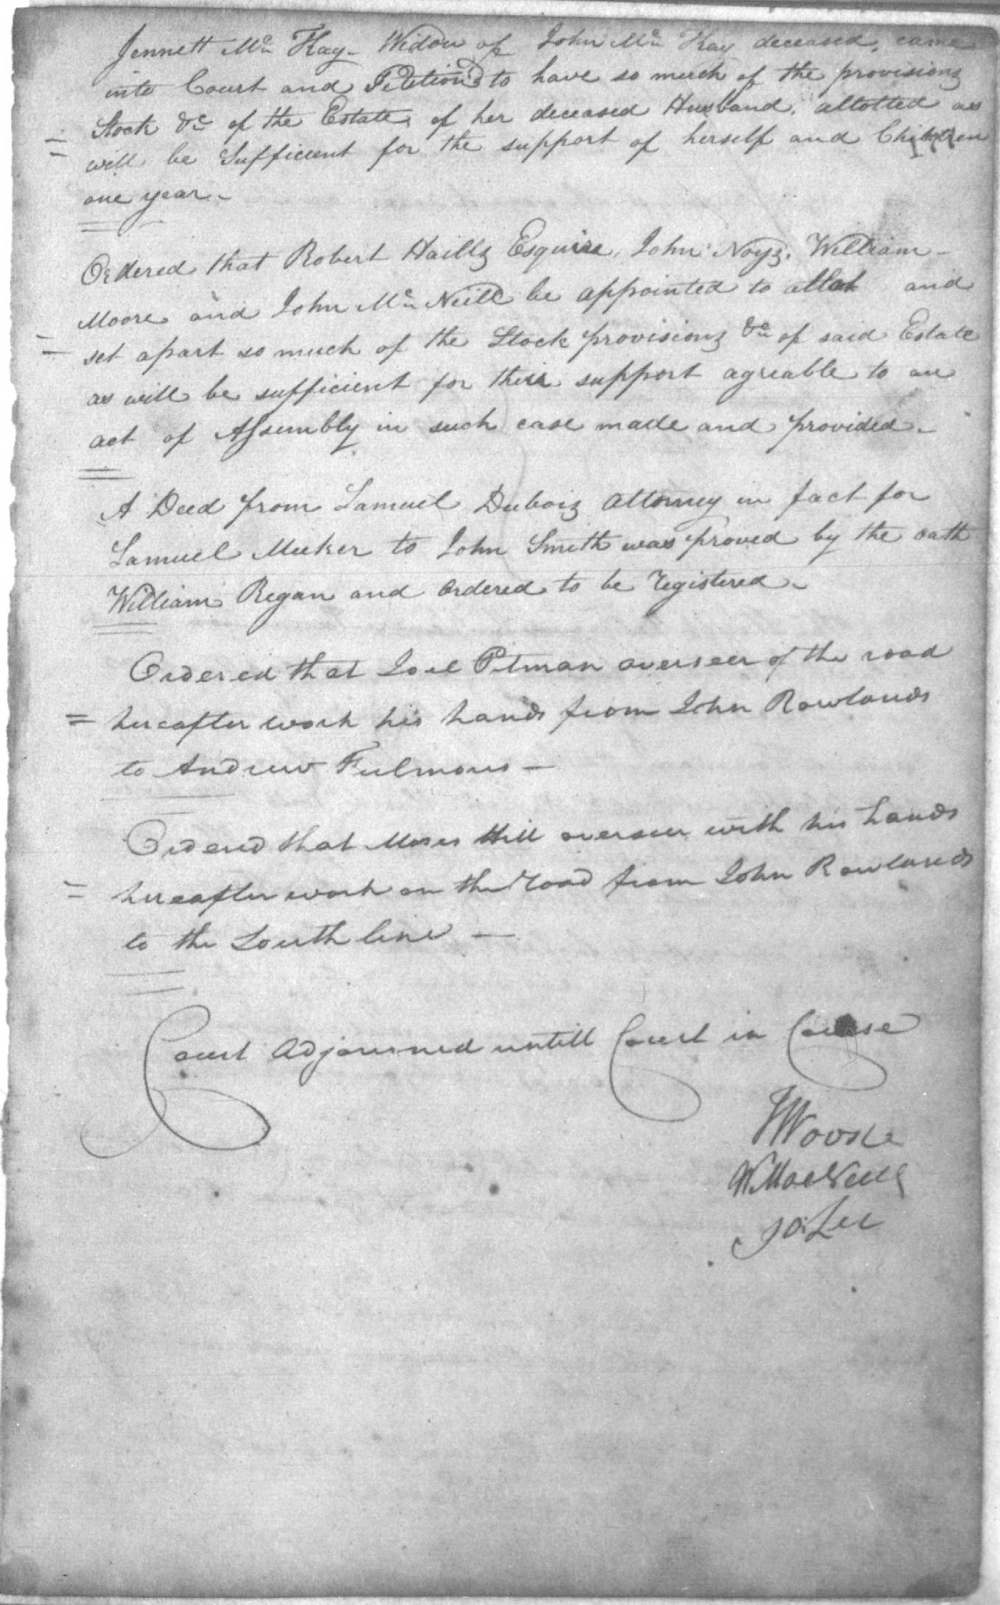 Jennett Mc Kay - Widow of John Mc Kay deceased, came
into Court and Petitiond to have so much of the provisions
Stock &c of the Estate of her deceased Husband, allotted as
will be Sufficient for the support of herself and Children
one year -
Ordered that Robert Hails Esquire, John Noys, William
Moore and John Mc Neill be appointed to allot and
set apart so much of the Stock provisions &c of said Estate
as will be sufficient for their support agreable to an
act of Assembly in such case made and provided -
A Deed from Samuel Dubois attorney in fact for
Samuel Meeker to John Smith was proved by the oath
William Regan and ordered to be registered -
Ordered that Joel Pitman overseer of the road
hereafter work his hands from John Rowlands
to Andrew Fulmores -
Ordered that Moses Hill overseer with his hands
hereafter work on the road from John Rowlands
to the South line -
Court Adjourned untill Court in Course
W MacNeill
Jo. Lee